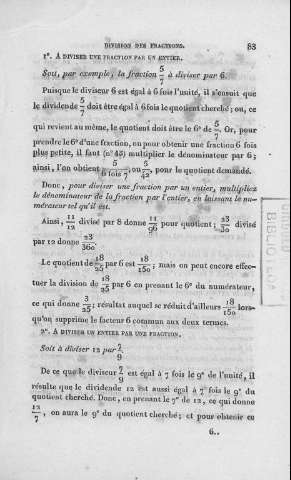 DIVISION DES FRACTIONS. 83
1°. A DIVISER UNE FRACTION PAR UN ENTIER.
Soit, par exemple, la fraction 5/7 à diviser par 6.
Puisque le diviseur 6 est égal à 6 fois l'unité, il s'ensuit que
le dividende 5/7 doit être égal à 6 fois le quotient cherché; ou, ce
qui revient au même, le quotient doit être le 6e de 5/7. Or, pour
prendre le 6e d'une fraction, ou pour obtenir une fraction 6 fois
plus petite, il faut (n° 45) multiplier le dénominateur par 6;
ainsi, l'on obtient 5/6 fois 7, ou 5/42, pour le quotient demandé.
Donc, pour diviser une fraction par un entier, multipliez
le dénominateur de la fraction par l'entier, en laissant le nu-
mérateur tel qu'il est.
Ainsi, 11/12 divisé par 8 donne 11/96 pour quotient; 23/30 divisé
par 12 donne 23/360.
Le quotient de 18/25 par 6 est 18/150; mais on peut encore effec-
tuer la division de 18/25 par 6 en prenant le 6e du numérateur,
ce qui donne 3/25; résultat auquel se réduit d'ailleurs 18/150 lors-
qu'on supprime le facteur 6 commun aux deux termes.
2°. A DIVISER UN ENTIER PAR UNE FRACTION.
Soit à diviser 12 par 7/9
De ce que le diviseur 7/9 est égal à 7 fois le 9e de l'unité, il
résulte que le dividende 12 est aussi égal à 7 fois le 9e du
quotient cherché. Donc, en prenant le 7e de 12, ce qui donne
12/7, on aura le 9e du quotient cherché; et pour obtenir ce
6..
BIBLIO